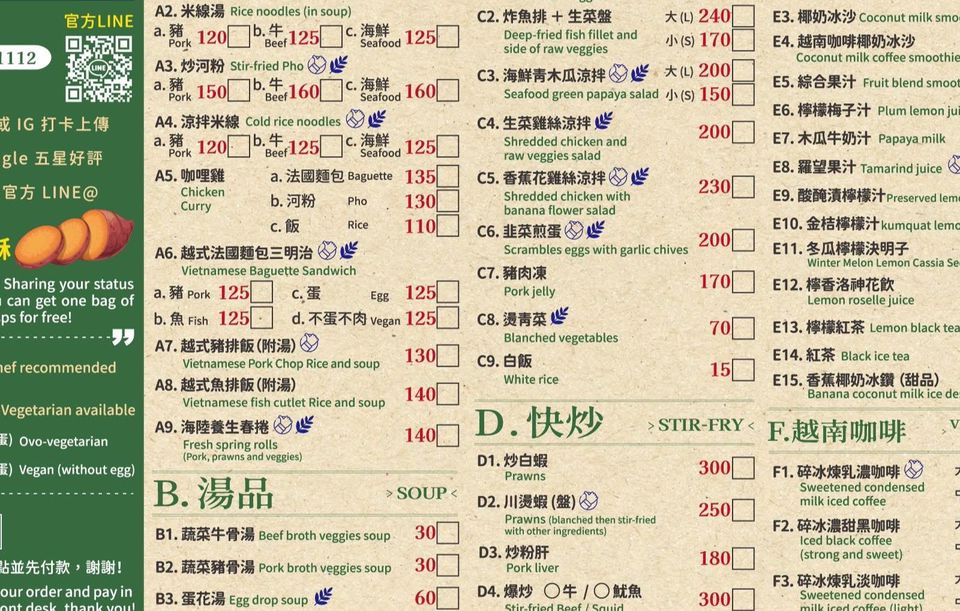 官方LINE
1112
LINE
或 IG 打卡上傳
gle 五星好評
官方 LINE@
Sharing your status
can get one bag of
ps for free!
hef recommended
Vegetarian available
蛋) Ovo-vegetarian
蛋) Vegan (without egg)
點並先付款，謝謝!
our order and pay in
ont desk, thank you!
A2. 米線湯 Rice noodles (in soup)
a. 豬 Pork 120 b. 牛 Beef 125 c. 海鮮 Seafood 125
A3. 炒河粉 Stir-fried Pho
a. 豬 Pork 150 b. 牛 Beef 160 c. 海鮮 Seafood 160
A4. 涼拌米線 Cold rice noodles
a. 豬 Pork 120 b. 牛 Beef 125 c. 海鮮 Seafood 125
A5. 咖哩雞 a. 法國麵包 Baguette 135
Chicken
Curry
b. 河粉 Pho 130
c. 飯 Rice 110
A6. 越式法國麵包三明治
Vietnamese Baguette Sandwich
a. 豬 Pork 125 c. 蛋 Egg 125
b. 魚 Fish 125 d. 不蛋不肉 Vegan 125
A7. 越式豬排飯(附湯) 130
Vietnamese Pork Chop Rice and soup
A8. 越式魚排飯(附湯) 140
Vietnamese fish cutlet Rice and soup
A9. 海陸養生春捲 140
Fresh spring rolls
(Pork, prawns and veggies)
B. 湯品 > SOUP <
B1. 蔬菜牛骨湯 Beef broth veggies soup 30
B2. 蔬菜豬骨湯 Pork broth veggies soup 30
B3. 蛋花湯 Egg drop soup 60
C2. 炸魚排 + 生菜盤 大 (L) 240
Deep-fried fish fillet and
side of raw veggies
小 (S) 170
C3. 海鮮青木瓜涼拌 大 (L) 200
Seafood green papaya salad 小 (S) 150
C4. 生菜雞絲涼拌 200
Shredded chicken and
raw veggies salad
C5. 香蕉花雞絲涼拌 230
Shredded chicken with
banana flower salad
C6. 韭菜煎蛋 200
Scrambles eggs with garlic chives
C7. 豬肉凍 170
Pork jelly
C8. 燙青菜 70
Blanched vegetables
C9. 白飯 15
White rice
D. 快炒 > STIR-FRY <
D1. 炒白蝦 300
Prawns
D2. 川燙蝦 (盤) 250
Prawns (blanched then stir-fried
with other ingredients)
D3. 炒粉肝 180
Pork liver
D4. 爆炒 〇牛 / 〇魷魚 300
Stir-fried Beef / Squid
E3. 椰奶冰沙 Coconut milk smo
E4. 越南咖啡椰奶冰沙
Coconut milk coffee smoothie
E5. 綜合果汁 Fruit blend smoot
E6. 檸檬梅子汁 Plum lemon jui
E7. 木瓜牛奶汁 Papaya milk
E8. 羅望果汁 Tamarind juice
E9. 酸醃漬檸檬汁 Preserved lemo
E10. 金桔檸檬汁 kumquat lemo
E11. 冬瓜檸檬決明子
Winter Melon Lemon Cassia See
E12. 檸香洛神花飲
Lemon roselle juice
E13. 檸檬紅茶 Lemon black tea
E14. 紅茶 Black ice tea
E15. 香蕉椰奶冰鑽 (甜品)
Banana coconut milk ice des
F. 越南咖啡 > V
F1. 碎冰煉乳濃咖啡
Sweetened condensed
milk iced coffee
F2. 碎冰濃甜黑咖啡
Iced black coffee
(strong and sweet)
F3. 碎冰煉乳淡咖啡
Sweetened condensed
milk iced coffee (light)